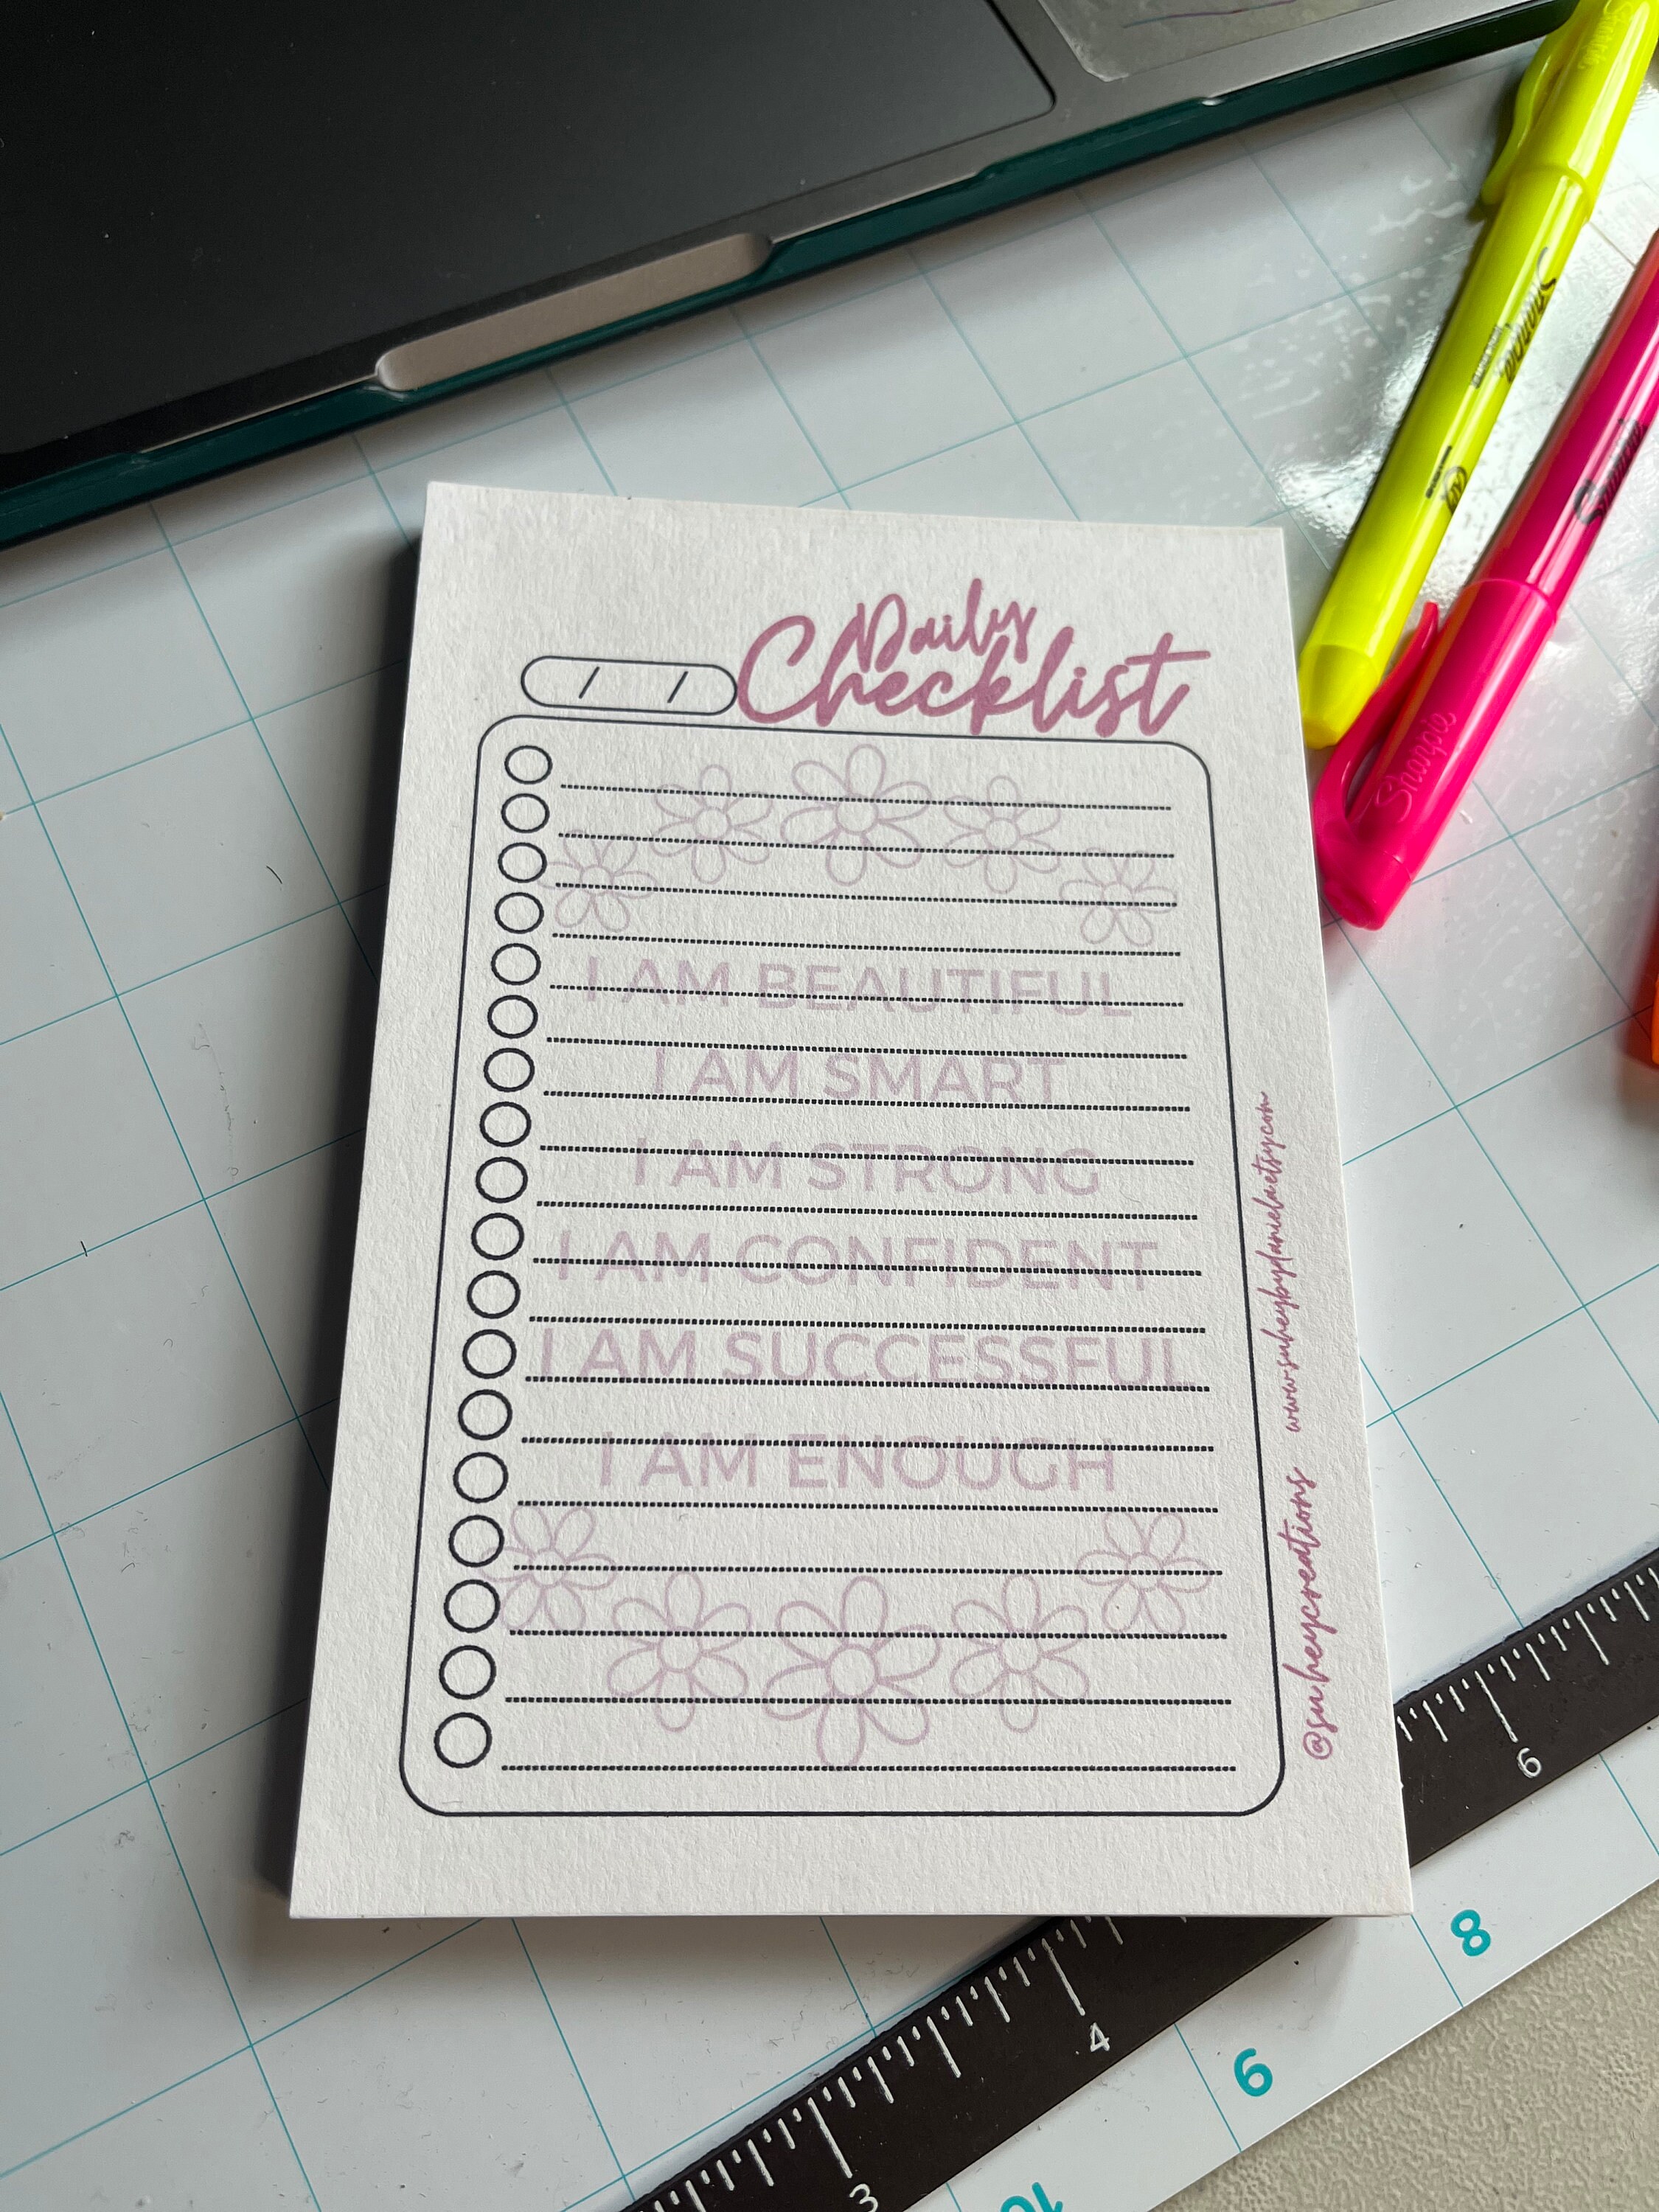 Daily
Checklist
/ /
I AM BEAUTIFUL
I AM SMART
I AM STRONG
I AM CONFIDENT
I AM SUCCESSFUL
I AM ENOUGH
@suheycreations www.suheybydaniela.etsy.com
Sharpie
Sharpie
Sharpie
6
4
3
8
9
10